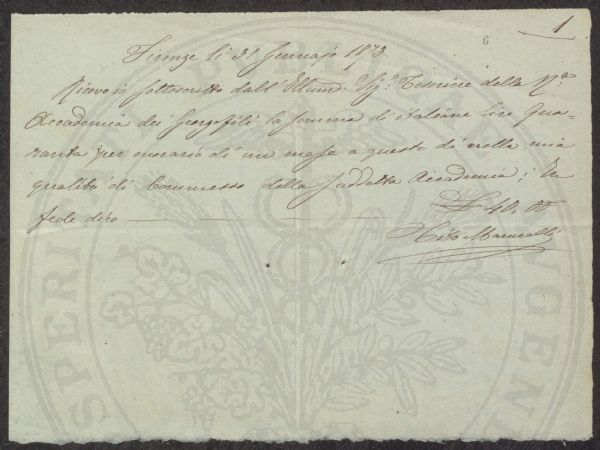 1
6
Firenze li 31 Gennajo 1873
Ricevo io sottoscritto dall' Illmo. Sig.e Tesoriere della Rª
Accademia dei Georgofili la somma di italiane Lire Qua-
ranta per onorario di un mese a questo dì nella mia
qualità di Commesso della suddetta Accademia; In
fede dico
L. 40, 00
Marucelli
PUBLICAE
PROSPERITATI
AUGENDAE